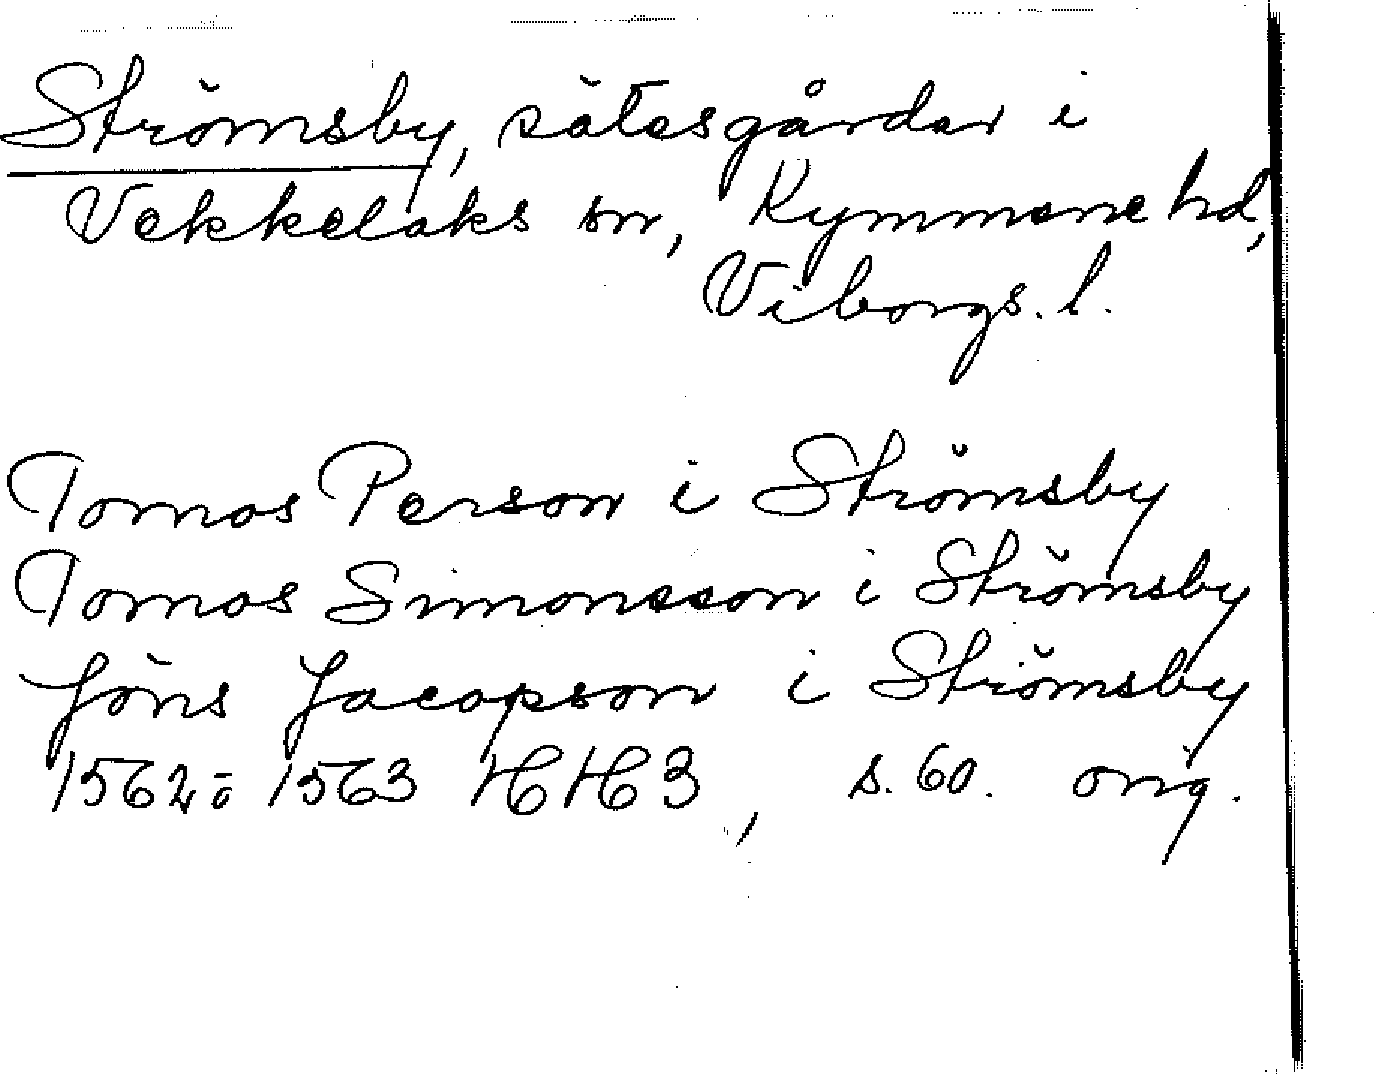 Strömsby, sätesgårdar i
Vekkelaks sn, Kymmene hd,
Viborgs. l.
Tomos Person i Strömsby
Tomos Simonsson i Strömsby
Jöns Jacopson i Strömsby
1562 ö 1563 HH3, s. 60. orig.